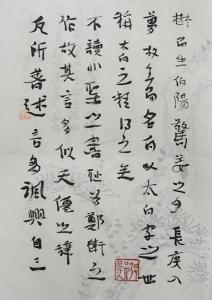 樹而生伯陽驚姜之夕長庚入
夢故生而名白以太白字之世
稱太白之精得之矣
不讀非聖之書恥為鄭衛之
作故其言多似天僊之辭
凡所著述言多諷興自三